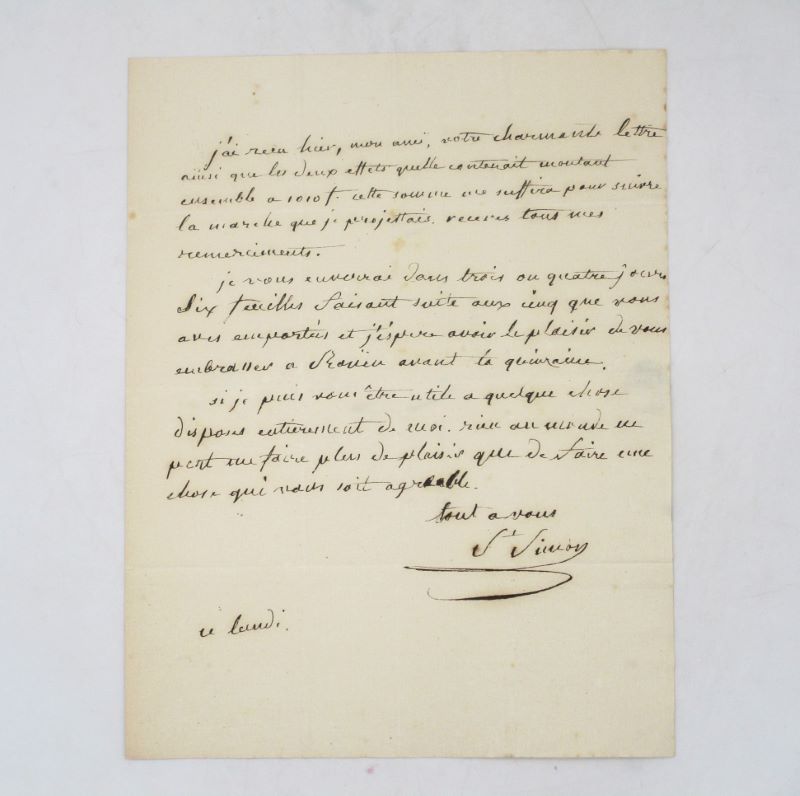 j'ai recu hier, mon ami, votre charmante lettre
ainsi que les deux effets quelle contenait montant
ensemble a 1010 f. cette somme me suffira pour suivre
la marche que je projettais. receves tous mes
remerciments.
je vous enverrai dans trois ou quatre jours
six feuilles faisant suite aux cinq que vous
aves emportés et j'éspere avoir le plaisir de vous
embrasser a Roüen avant la quinzaine.
si je puis vous être utile a quelque chose
disposes entierement de moi. rien au monde ne
peut me faire plus de plaisir que de faire une
chose qui vous soit agreable.
tout a vous
St Simon
ce lundi.